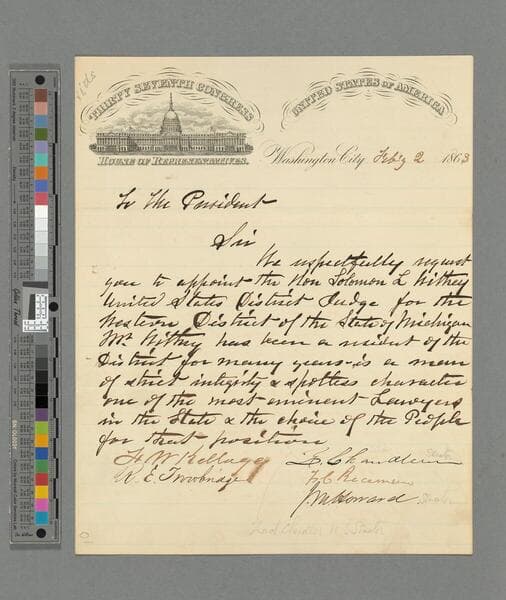 THIRTY SEVENTH CONGRESS
UNITED STATES OF AMERICA
HOUSE OF REPRESENTATIVES.
Washington City, Feby 2 1863
To The President
Sir
We respectfully request
you to appoint the Hon Solomon L Withey
United States District Judge for the
Western District of the State of Michigan
Mr Withey has been a resident of the
District for many years is a man
of strict integrity & spotless character
one of the most eminent Lawyers
in the State & the choice of the People
for that position
F W Kellogg
Z Chandler
R. E. Trowbridge
F. C. Beaman
J M Howard